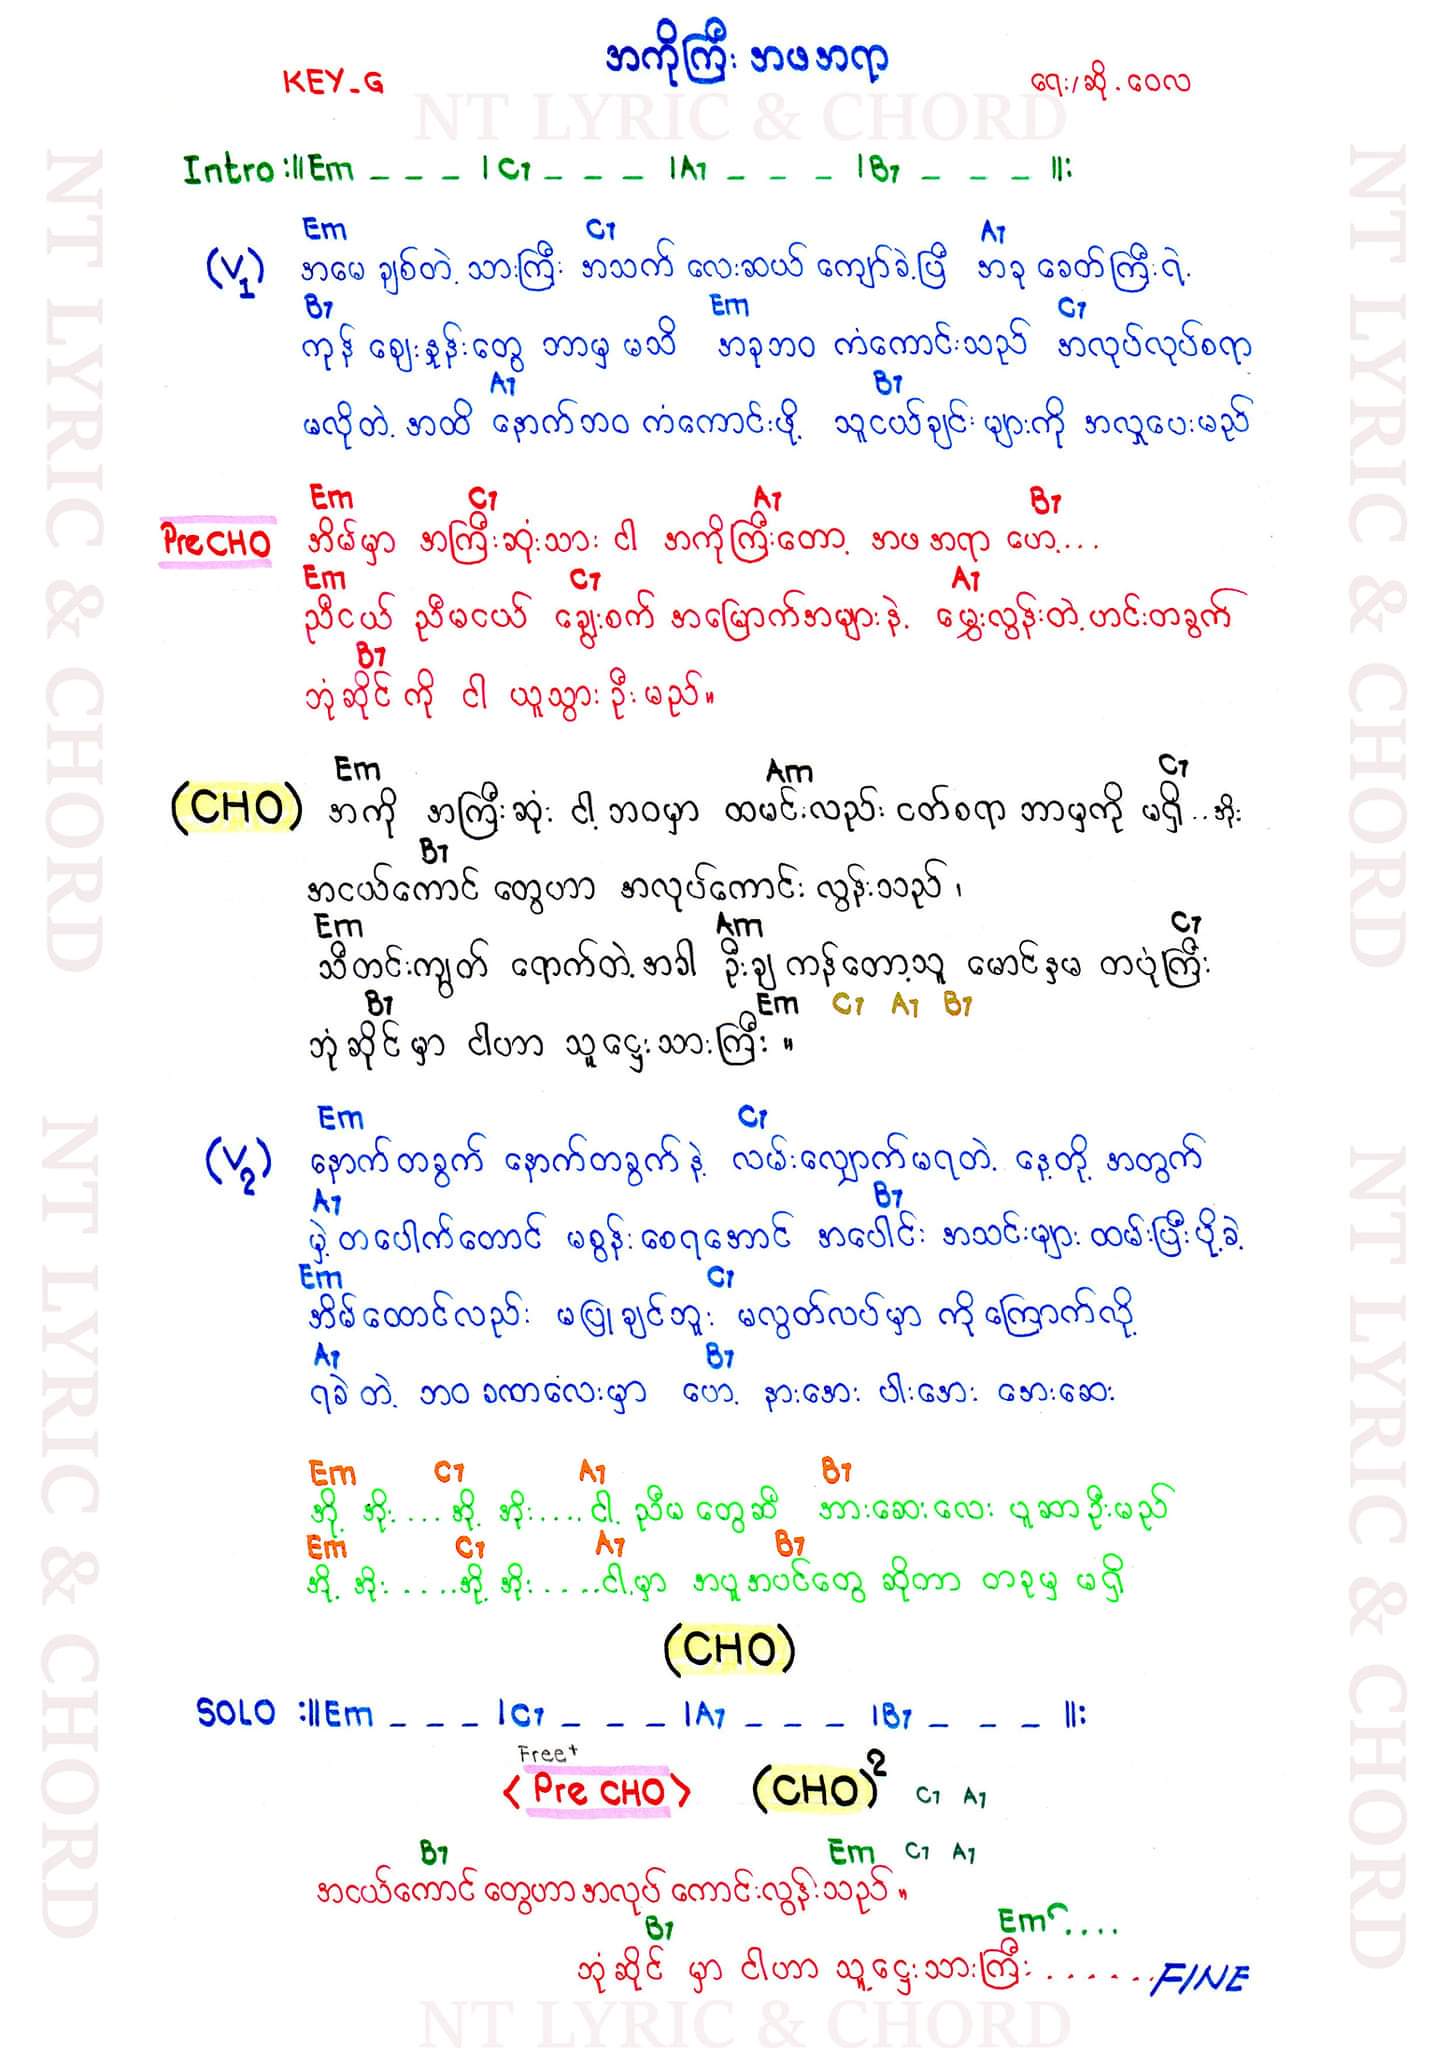 အကိုကြီး အဖအရာ
KEY_G
ရေး/ဆို . ဝေလ
NT LYRIC & CHORD
Intro :||Em _ _ _ |C7 _ _ _ |A7 _ _ _ |B7 _ _ _ ||:
Em C7 A7
(V1) အမေ ချစ်တဲ့ သားကြီး အသက် လေးဆယ် ကျော်ခဲ့ပြီ အခု ခေတ်ကြီးရဲ့
B7 Em C7
ကုန် ဈေးနှုန်းတွေ ဘာမှ မသိ အခုဘဝ ကံကောင်းသည် အလုပ်လုပ်စရာ
A7 B7
မလိုတဲ့ အထိ နောက်ဘဝ ကံကောင်းဖို့ သူငယ်ချင်း များကို အလှူပေးမည်
Em C7 A7 B7
Pre CHO အိမ်မှာ အကြီးဆုံးသား ငါ အကိုကြီးတော့ အဖ အရာ ဟေ့....
Em C7 A7
ညီငယ် ညီမငယ် ချွေးစက် အမြောက်အများနဲ့ မွှေးလွန်းတဲ့ ဟင်းတခွက်
B7
ဘုံဆိုင် ကို ငါ ယူသွား ဦးမည်။
Em Am C7
(CHO) အကို အကြီးဆုံး ငါ့ ဘဝမှာ ထမင်းလည်း ငတ်စရာ ဘာမှကို မရှိ..အိုး
B7
အငယ်ကောင် တွေဟာ အလုပ်ကောင်း လွန်းသည်၊
Em Am C7
သီတင်းကျွတ် ရောက်တဲ့အခါ ဦးချ ကန်တော့သူ မောင်နှမ တပုံကြီး
B7 Em C7 A7 B7
ဘုံဆိုင်မှာ ငါဟာ သူဌေးသားကြီး။
Em C7
(V2) နောက်တခွက် နောက်တခွက်နဲ့ လမ်းလျှောက်မရတဲ့ နေ့တို့ အတွက်
A7 B7
မှဲ့တပေါက်တောင် မစွန်းစေရအောင် အပေါင်း အသင်းများ ထမ်းပြီးပို့ခဲ့
Em C7
အိမ်ထောင်လည်း မပြုချင်ဘူး မလွတ်လပ်မှာ ကို ကြောက်လို့
A7 B7
ရခဲတဲ့ ဘဝ ခဏလေးမှာ ဟေ့ နားအေး ပါးအေး အေးဆေး
Em C7 A7 B7
အို့ အိုး....အို့ အိုး....ငါ့ ညီမ တွေဆီ အားဆေးလေး ပူဆာဦးမည်
Em C7 A7 B7
အို့ အိုး.....အို့ အိုး....ငါ့မှာ အပူအပင်တွေ ဆိုတာ တခုမှ မရှိ
(CHO)
SOLO :||Em _ _ _ |C7 _ _ _ |A7 _ _ _ |B7 _ _ _ ||:
Free+
<Pre CHO> (CHO)2 C7 A7
B7 Em C7 A7
အငယ်ကောင် တွေဟာအလုပ် ကောင်းလွန်းသည်။
B7 Em....
ဘုံဆိုင် မှာ ငါဟာ သူဌေးသားကြီး......FINE
NT LYRIC & CHORD
NT LYRIC & CHORD
NT LYRIC & CHORD
NT LYRIC & CHORD
NT LYRIC & CHORD